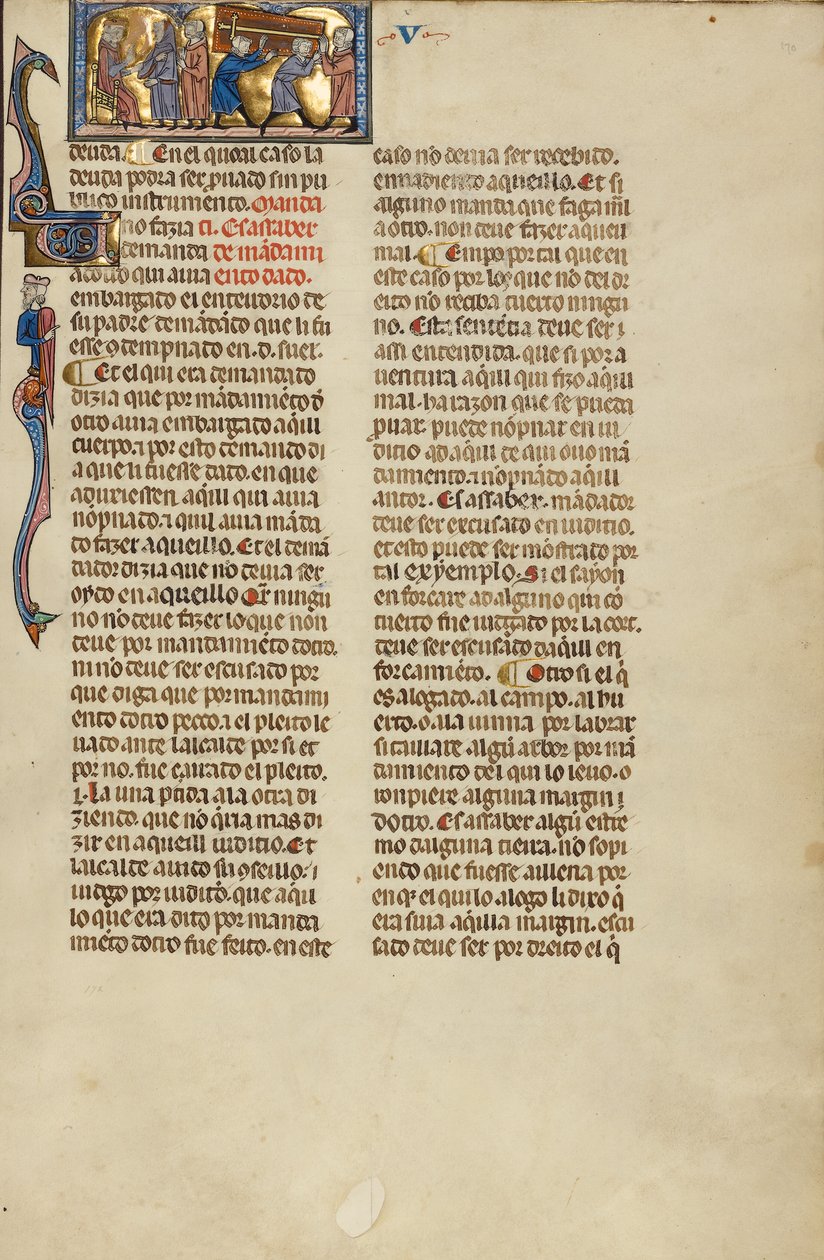 V
170
deuda. ¶ En el quoal caso la
deuda podra ser puado sin pu
blico instrumento. Manda
no fazia ti. Es assaber
demanda de mādami
ento dado.
embargado el enterrorio de
su padre demādādo que li fu
esse ꝯdempnado en .D. suel.
¶ Et el qui era demandado
dizia que por mādamiēto dꝰ
otro auia embargado aq̄ill
cuerpo. ⁊ por esto demando di
a que li fuesse dado. en que
aduxiessen aq̄ill qui auia
nōpnado. ⁊ quil auia māda
do fazer aqueillo. Et el demā
dador dizia que no deuia ser
oydo en aqueillo Or ningū
no no deue fazer lo que non
deue por mandamiēto dotro.
ni no deue ser escusado por
que diga que por mandami
ento dotro pecco. ⁊ el pleito le
uado ante lalcalde por si et
por no. fue çarrado el pleito.
⁊. La una ptida a la otra di
ziendo. que no q̄ria mas di
zir en aqueill iuditio. Et
lalcalde auido su ꝯseillo. ⁊
iudgo por iuditō. que aq̄il
lo que era dito por manda
miēto dotro fue feito. en este
caso no deuia ser recebido.
ennadiendo aqueillo. Et si
alguno manda que faga mal
a otro. non deue fazer aqueil
mal. ¶ Empo por tal que en
este caso por los que no del dr
eito no reciba tuerto ningu
no. Esta sentētia deue ser ⁊
assi entendida. que si por a
uentura aq̄ill qui fizo aq̄ill
mal. ha razon que se pueda
puar. puede nōpnar en iu
ditio ad aq̄ill de qui ouo mā
damiento. ⁊ nōpnado aq̄ill
autor. Es assaber. mādador
deue ser excusado en iuditio.
et esto puede ser mostrado por
tal exyemplo. Si el sayon
enforcare ad alguno qui cō
tuerto fue iudgado por la cort.
deue ser escusado daq̄ill en
forcamiēto. ¶ Otro si el q̄
es alogado. al campo. al hu
erto. o. a la uinna por labrar
si taillare algū arbor por mā
damiento del qui lo leuo. o
ronpiere alguna margin ⁊
dotro. Es assaber algū estre
mo dalguna tierra. no sopi
endo que fuesse aillena por
en q̄ el qui lo alogo li dixo q̄
era suia aq̄illa margin. escu
sado deue ser por dreito el q̄
172